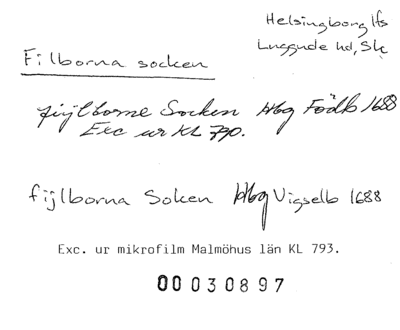 Helsingborg lfs
Luggude hd, Sk
Filborna socken
fijlborne Socken Hbg Födlb 1688
Exc ur KL 790.
fijlborna Soken Hbg Vigselb 1688
Exc. ur mikrofilm Malmöhus län KL 793.
00030897